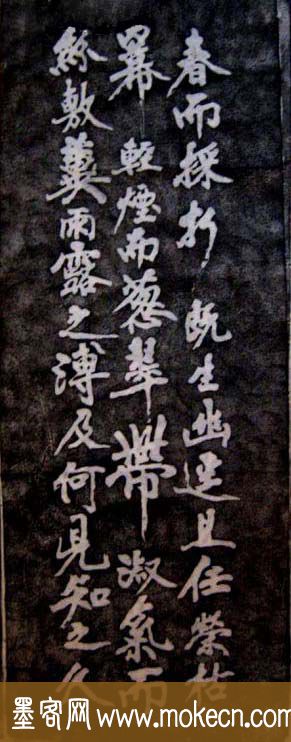 春而採折既生幽逕且任榮枯
羃輕煙而蔥翠帶淑氣而
紛敷冀雨露之溥及何見知之久
墨客网 www.mokecn.com